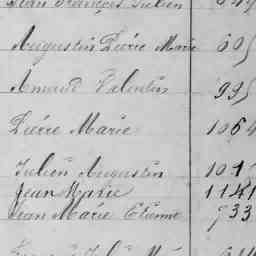 Jean François Julien
Augustin Pierre Marie 605
Amand Valentin 995
Pierre Marie 1064
Julien Augustin
Jean Marie 1141
Jean Marie Etienne 933